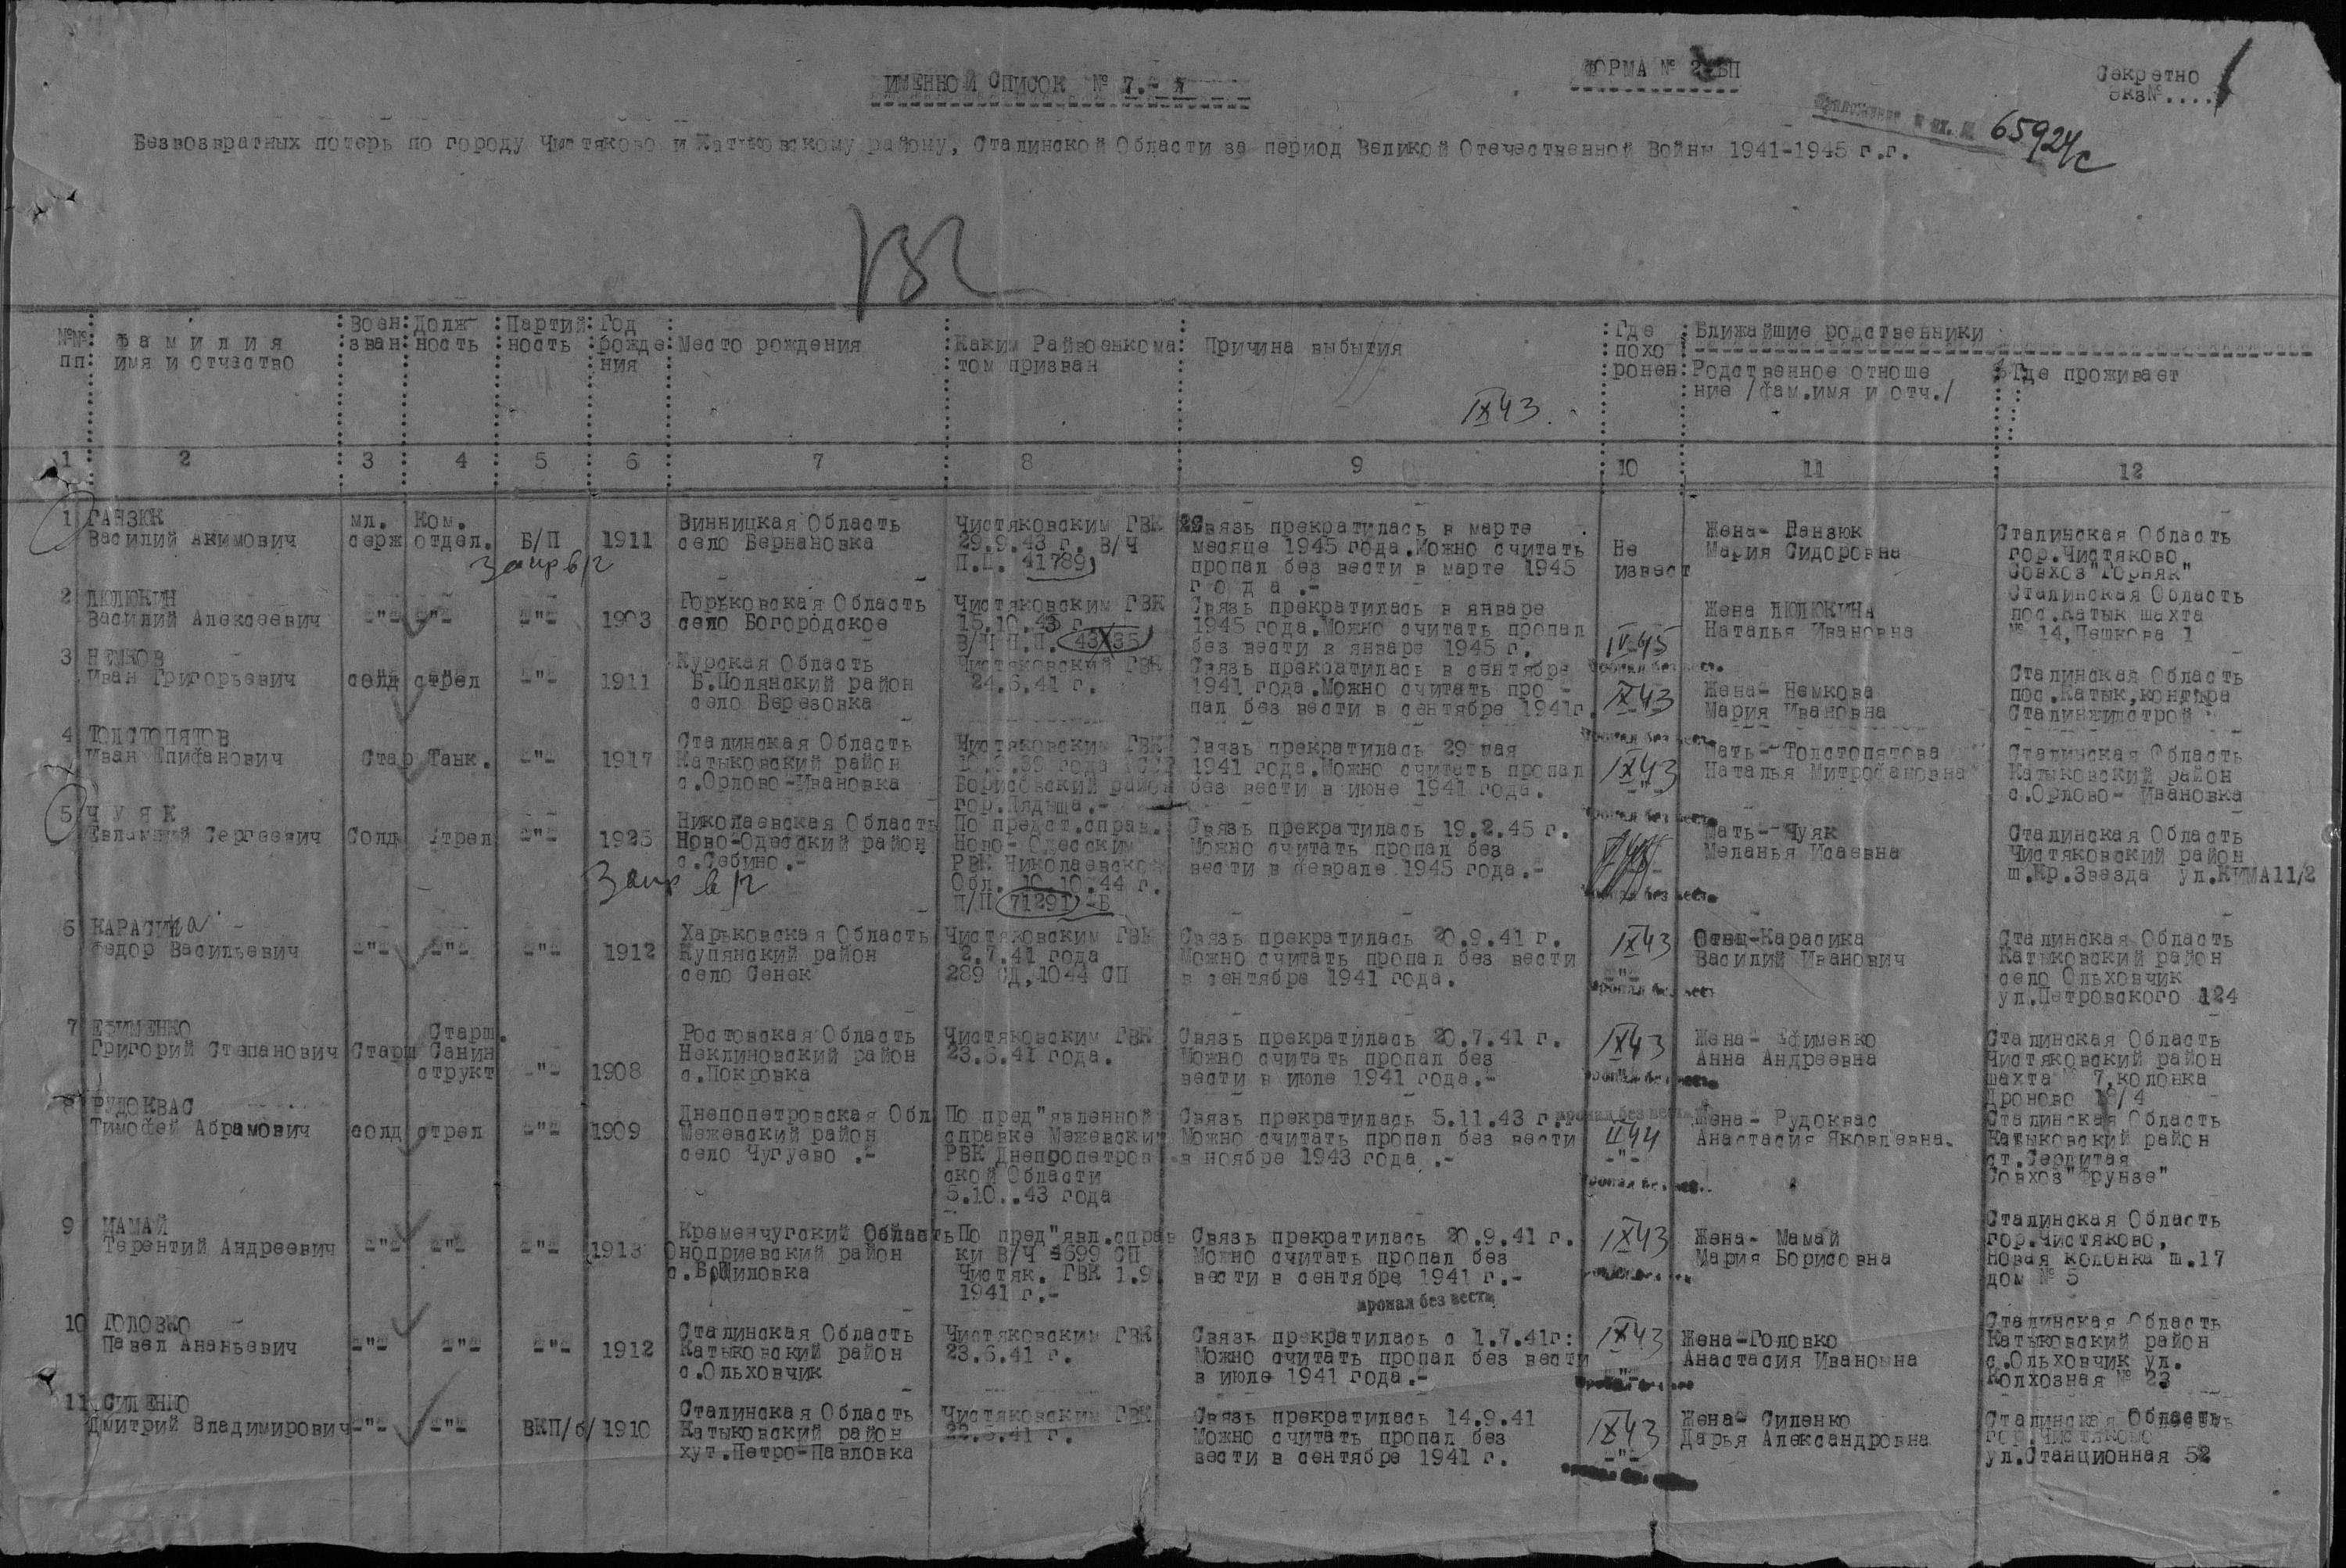 ИМЕННОЙ СПИСОК № 7.-
ФОРМА № 2-БП
Секретно
Экз№....1
65924с
Безвозвратных потерь по городу Чистяково и Катыковскому району, Сталинской Области за период Великой Отечественной Войны 1941-1945 г.г.
№№ пп
Фамилия имя и отчество
Воен зван
Долж ность
Партий ность
Год рожде ния
Место рождения
Каким Райвоенкома том призван
Причина выбытия
Где похо ронен
Ближайшие родственники
Родственное отноше ние /фам.имя и отч./
Где проживает
IX43
1 2 3 4 5 6 7 8 9 10 11 12
1 ГАНЗЮК
Василий Акимович
мл. серж
Ком. отдел.
Б/П
1911
Винницкая Область
село Бернановка
Чистяковским ГВК
29.9.43 г. В/Ч
П.П. 41789
Связь прекратилась в марте
месяце 1945 года.Можно считать
пропал без вести в марте 1945
года.-
Не
извест
Жена- Ганзюк
Мария Сидоровна
Сталинская Область
гор.Чистяково
Совхоз"Горняк"
2 ЛЮЛЮКИН
Василий Алексеевич
-"- -"- -"-
1903
Горьковская Область
село Богородское
Чистяковским ГВК
15.10.43 г.
В/Ч П.П. 43X35
Связь прекратилась в январе
1945 года.Можно считать пропал
без вести в январе 1945 г.
IV-45
Жена ЛЮЛЮКИНА
Наталья Ивановна
Сталинская Область
пос.Катык шахта
№ 14,Пешкова 1
3 НЕМКОВ
Иван Григорьевич
солд стрел -"-
1911
Курская Область
Б.Полянский район
село Березовка
Чистяковский ГВК
24.6.41 г.
Связь прекратилась в сентябре
1941 года.Можно считать про -
пал без вести в сентябре 1941г.
IX43
Жена- Немкова
Мария Ивановна
Сталинская Область
пос.Катык,контора
Сталинжилстрой
4 ТОЛСТОПЯТОВ
Иван Епифанович
Стар Танк. -"-
1917
Сталинская Область
Катыковский район
с.Орлово-Ивановка
Чистяковским ГВК
Борисовский район
Связь прекратилась 29 мая
1941 года.Можно считать пропал
без вести в июне 1941 года.
IX43
Мать- Толстопятова
Наталья Митрофановна
Сталинская Область
Катыковский район
с.Орлово- Ивановка
5 ЧУЯК
Евлампий Сергеевич
Солд Стрел -"-
1925
Николаевская Область
Ново-Одесский район
с.Себино.-
По предст.справ.
Ново- Одесским
РВК Николаевской
Обл. 10.10.44 г.
П/П 71291 -Б
Связь прекратилась 19.2.45 г.
Можно считать пропал без
вести в феврале 1945 года.-
Мать- Чуяк
Меланья Исаевна
Сталинская Область
Чистяковский район
ш.Кр.Звезда ул.КИМА11/2
6 КАРАСИКа
Федор Васильевич
-"- -"- -"-
1912
Харьковская Область
Купянский район
село Сенек
Чистяковским ГВК
2.7.41 года
289 СД,1044 СП
Связь прекратилась 20.9.41 г.
Можно считать пропал без вести
в сентябре 1941 года.
IX43
-"-
Отец-Карасика
Василий Иванович
Сталинская Область
Катыковский район
село Ольховчик
ул.Петровского 124
7 ЕФИМЕНКО
Григорий Степанович
Старш
Старш.
Санин
структ
-"-
1908
Ростовская Область
Неклиновский район
с.Покровка
Чистяковским ГВК
23.6.41 года.
Связь прекратилась 20.7.41 г.
Можно считать пропал без
вести в июле 1941 года.-
IX43
Жена- Ефименко
Анна Андреевна
Сталинская Область
Чистяковский район
шахта 7,колонка
Дроново 18/4
8 РУДОКВАС
Тимофей Абрамович
солд стрел -"-
1909
Днепопетровская Обл
Межевский район
село Чугуево .-
По пред"явленной
справке Межевским
РВК Днепропетров
ской Области
5.10..43 года
Связь прекратилась 5.11.43 г.
Можно считать пропал без вести
в ноябре 1943 года .-
II44
-"-
Жена- Рудоквас
Анастасия Яковлевна.
Сталинская Область
Катыковский район
ст.Сердитая
Совхоз"Фрунзе"
9 МАМАЙ
Терентий Андреевич
-"- -"- -"-
1913
Кременчугский Область
Оноприевский район
По пред"явл.справ
ки В/Ч 4699 СП
Чистяк. ГВК 1.9
1941 г.-
Связь прекратилась 20.9.41 г.
Можно считать пропал без
вести в сентябре 1941 г.-
пропал без вести
IX43
Жена- Мамай
Мария Борисовна
Сталинская Область
гор.Чистяково,
Новая колонка ш.17
дом № 5
10 ГОЛОВКО
Павел Ананьевич
-"- -"- -"-
1912
Сталинская Область
Катыковский район
с.Ольховчик
Чистяковским ГВК
23.6.41 г.
Связь прекратилась с 1.7.41г:
Можно считать пропал без вести
в июле 1941 года.-
IX43
-"-
Жена-Головко
Анастасия Ивановна
Сталинская Область
Катыковский район
с.Ольховчик ул.
Колхозная № 23
11 СИЛЕНКО
Дмитрий Владимирович
-"- -"-
ВКП/б/
1910
Сталинская Область
Катыковский район
хут.Петро-Павловка
Чистяковским ГВК
Связь прекратилась 14.9.41
Можно считать пропал без
вести в сентябре 1941 г.
IX43
-"-
Жена- Силенко
Дарья Александровна
Сталинская Область
гор.Чистяково
ул.Станционная 52